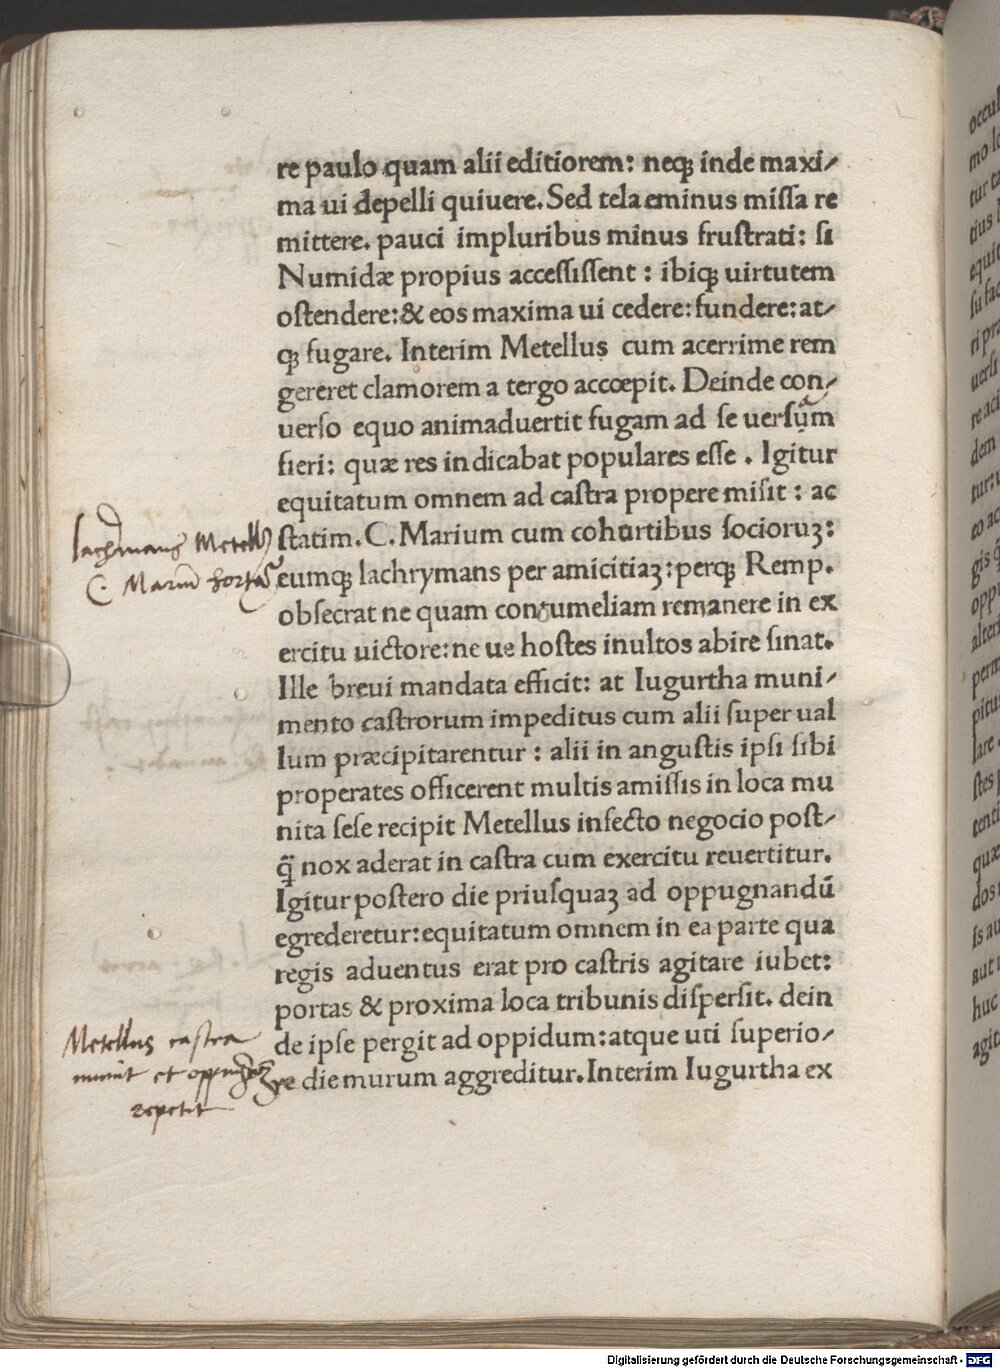 re paulo quam alii editiorem: neqꝫ inde maxi/
ma ui depelli quiuere. Sed tela eminus miſſa re
mittere. pauci impluribus minus fruſtrati: ſi
Numidæ propius acceſſiſſent : ibiqꝫ uirtutem
oſtendere: & eos maxima ui cedere: fundere: at/
qꝫ fugare. Interim Metellus cum acerrime rem
gereret clamorem a tergo accœpit. Deinde con/
uerſo equo animaduertit fugam ad ſe uerſum
fieri: quæ res indicabat populares eſſe . Igitur
equitatum omnem ad caſtra propere miſit : ac
ſtatim. C. Marium cum cohortibus ſocioruꝫ:
eumqꝫ lachrymans per amicitiaꝫ: perqꝫ Remp.
obſecrat ne quam contumeliam remanere in ex
ercitu uictore: ne ue hoſtes inultos abire ſinat.
Ille breui mandata efficit: at Iugurtha muni/
mento caſtrorum impeditus cum alii ſuper ual
lum præcipitarentur : alii in anguſtis ipſi ſibi
properates officerent multis amiſſis in loca mu
nita ſeſe recipit Metellus infecto negocio poſt/
q̃ nox aderat in caſtra cum exercitu reuertitur.
Igitur poſtero die priuſquaꝫ ad oppugnandū
egrederetur: equitatum omnem in ea parte qua
regis aduentus erat pro caſtris agitare iubet:
portas & proxima loca tribunis diſperſit. dein
de ipſe pergit ad oppidum: atque uti ſuperio/
re die murum aggreditur. Interim Iugurtha ex
lachrimans Metell9
C. Mariū
Metellus caſtra
munit et
repetit
Digitalisierung gefördert durch die Deutsche Forschungsgemeinschaft - DFG